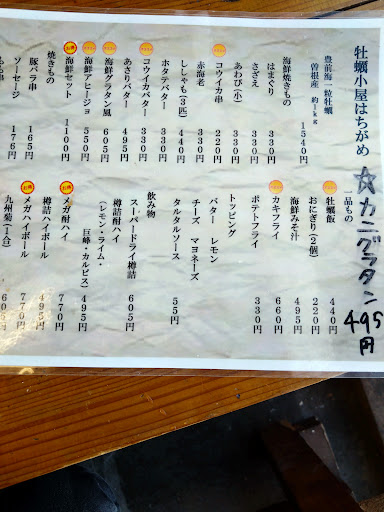 牡蠣小屋はちがめ
☆カニグラタン 495円
豊前海一粒牡蠣
曽根産 約1kg 1540円
海鮮焼きもの
はまぐり 330円
さざえ 330円
あわび(小) 330円
コウイカ串 220円
赤海老 330円
ししゃも(3匹) 440円
ホタテバター 330円
コウイカバター 330円
あさりバター 495円
海鮮グラタン風 605円
海鮮アヒージョ 550円
海鮮セット 1100円
焼きもの
豚バラ串 165円
ソーセージ 176円
一品もの
牡蠣飯 440円
おにぎり(2個) 220円
海鮮みそ汁 495円
カキフライ 660円
ポテトフライ 330円
トッピング
バター レモン
チーズ マヨネーズ
タルタルソース 55円
飲み物
スーパードライ樽詰 605円
樽詰酎ハイ
(レモン・ライム・
巨峰・カルピス) 495円
メガ酎ハイ 770円
樽詰ハイボール 495円
メガハイボール 770円
九州菊(1合) 605